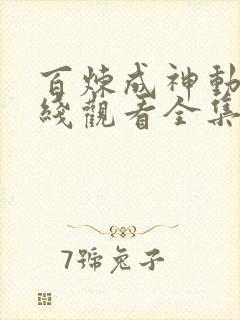 百煉成神動
綫觀看全集
7號兔子